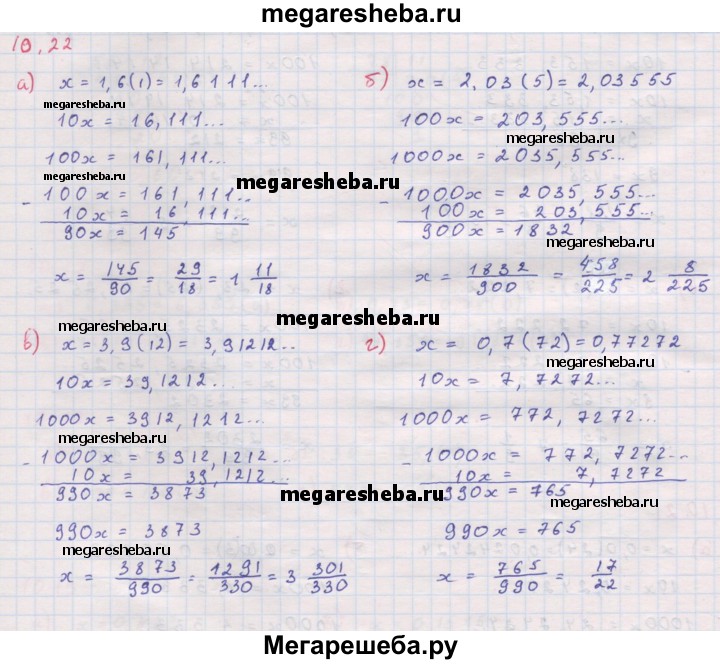 megaresheba.ru
10.22
а) x = 1,6(1) = 1,6111...
megaresheba.ru
10x = 16,111...
100x = 161,111...
megaresheba.ru
- 100x = 161,111...
10x = 16,111...
90x = 145
x = 145/90 = 29/18 = 1 11/18
б) x = 2,03(5) = 2,03555
100x = 203,555...
megaresheba.ru
1000x = 2035,555...
- 1000x = 2035,555...
100x = 203,555...
900x = 1832
megaresheba.ru
x = 1832/900 = 458/225 = 2 8/225
megaresheba.ru
megaresheba.ru
в) x = 3,9(12) = 3,91212..
10x = 39,1212...
1000x = 3912,1212...
megaresheba.ru
- 1000x = 3912,1212...
10x = 39,1212...
990x = 3873
megaresheba.ru
990x = 3873
megaresheba.ru
x = 3873/990 = 1291/330 = 3 301/330
megaresheba.ru
г) x = 0,7(72) = 0,77272
10x = 7,7272...
1000x = 772,7272...
megaresheba.ru
- 1000x = 772,7272...
10x = 7,7272
990x = 765
megaresheba.ru
990x = 765
x = 765/990 = 17/22
Мегарешеба.ру